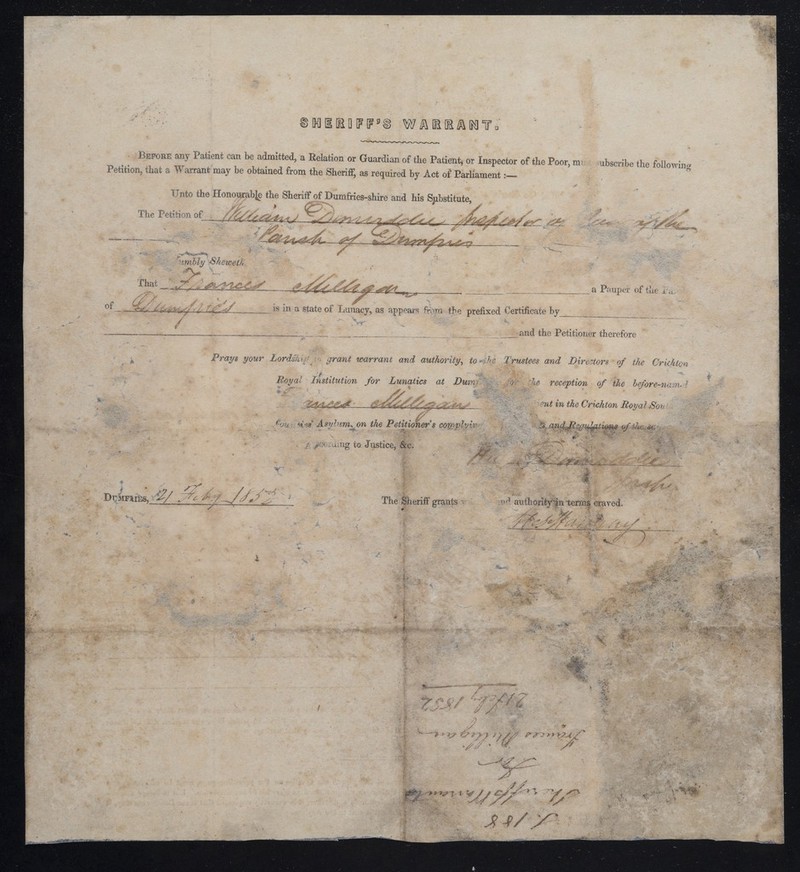 SHERIFF'S WARRANT.
BEFORE any Patient can be admitted, a Relation or Guardian of the Patient, or Inspector of the Poor, subscribe the following
Petition, that a Warrant may be obtained from the Sheriff, as required by Act of Parliament :—
Unto the Honourable the Sheriff of Dumfries-shire and his Substitute,
The Petition of William Inspector of the
Parish of Dumfries
Sheweth
That Frances Milligan a Pauper of the
of Dumfries is in a state of Lunacy, as appears from the prefixed Certificate by
and the Petitioner therefore
Prays your grant warrant and authority, to the Trustees and Directors of the Crichton
Royal Institution for Lunatics at the reception of the before-named
Milligan in the Crichton Royal
Asylum, on the Petitioner's and Regulations of the
to Justice, &c.
DUMFRIES, 21 Feby 1852 The Sheriff grants authority in terms craved.
21 Feby 1852
Frances Milligan
for
Sheriff's Warrant